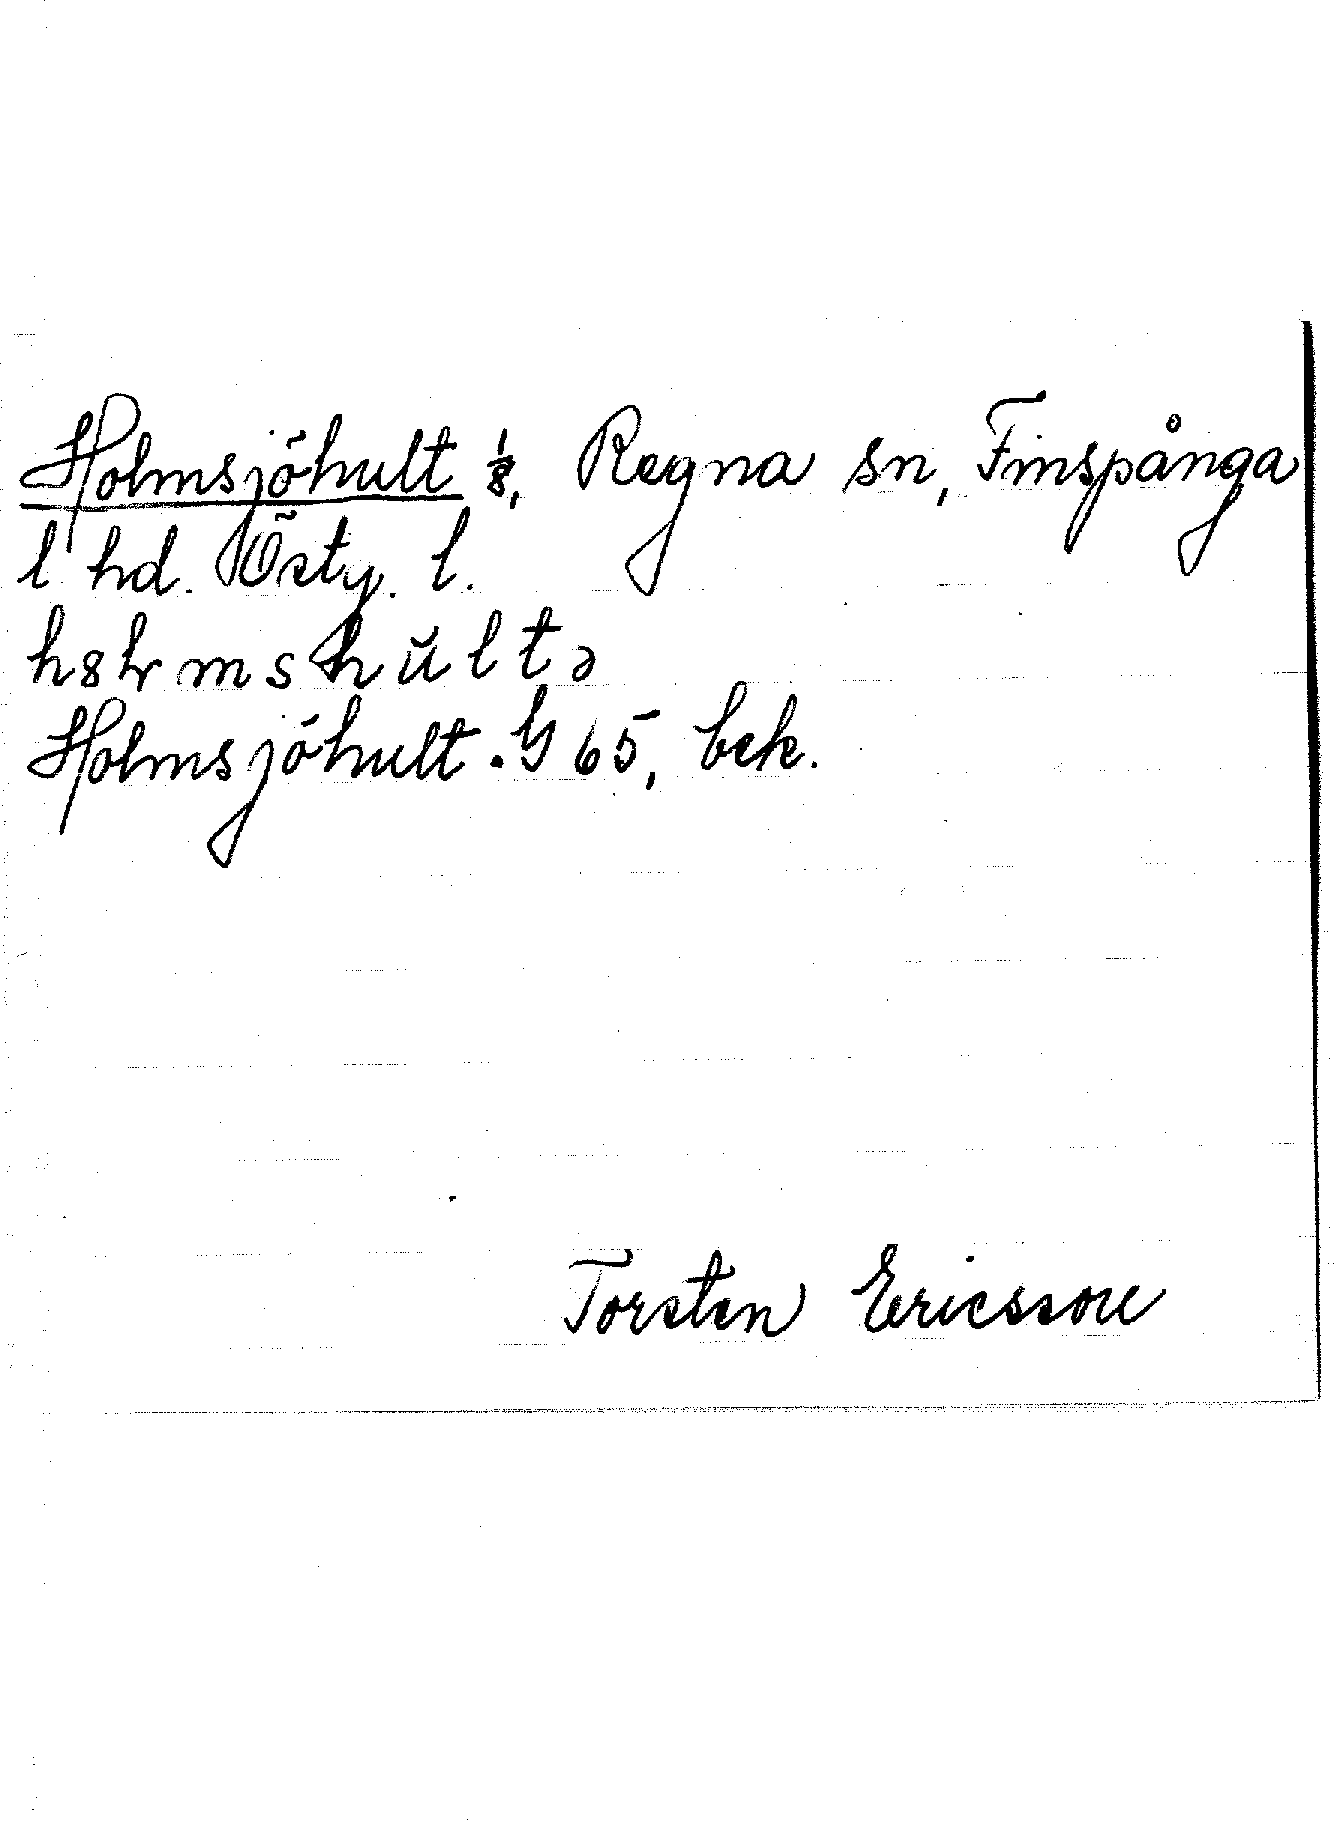 Holmsjöhult 1/8, Regna sn, Finspånga
l hd. Östg. l.
Holmsjöhult. G 65, bek.
Torsten Ericsson